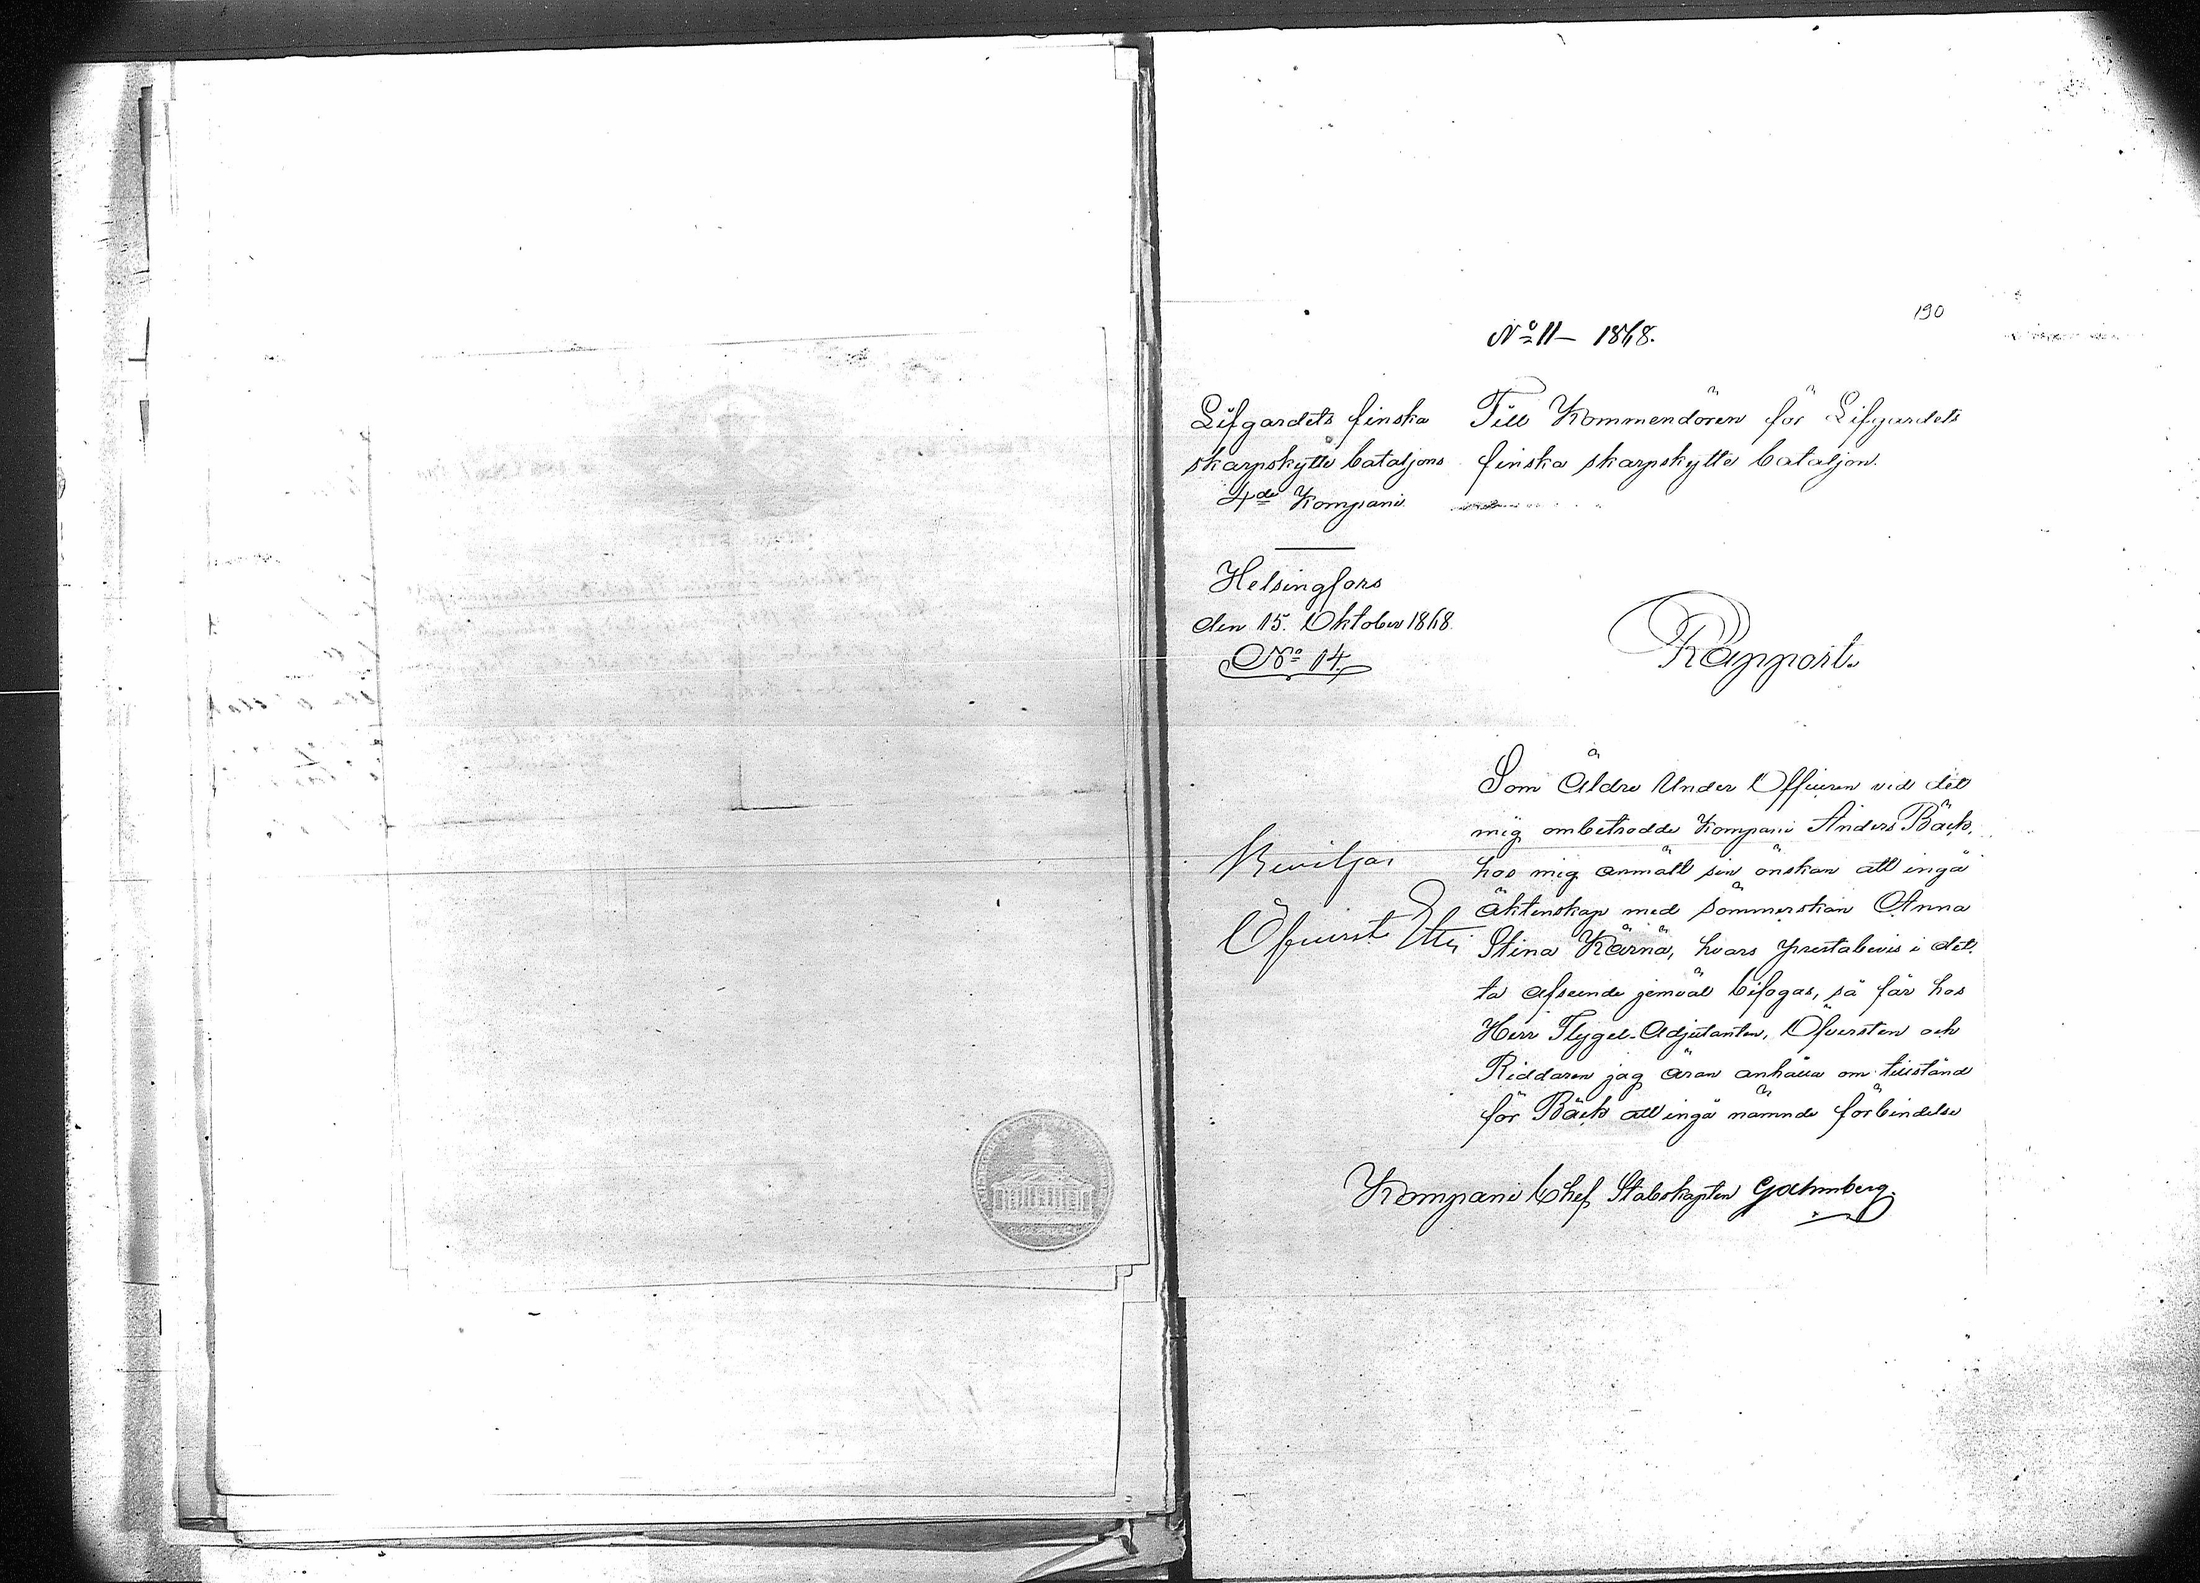 190
Nº 11 – 1868.
Lifgardets finska
skarpskytte bataljons
4de Kompani
Helsingfors
den 15. Oktober 1868.
Nº 14.
Till Kommendören för Lifgardets
finska skarpskytte bataljon.
Rapport.
Som Äldre Under Officeren vid det
mig ombetrodde Kompani Anders Bäck,
hos mig anmält sin önskan att ingå
äktenskap med sömmerskan Anna
Stina Kärnä, hvars prestabevis i det-
ta afseende jemväl bifogas, så får hos
Herr Flygel-Adjutanten, Öfversten och
Riddaren jag äran anhålla om tillstånd
för Bäck att ingå nämnde förbindelse
Beviljas
Öfverst
Kompani Chef, Stabskapten Gahmberg.